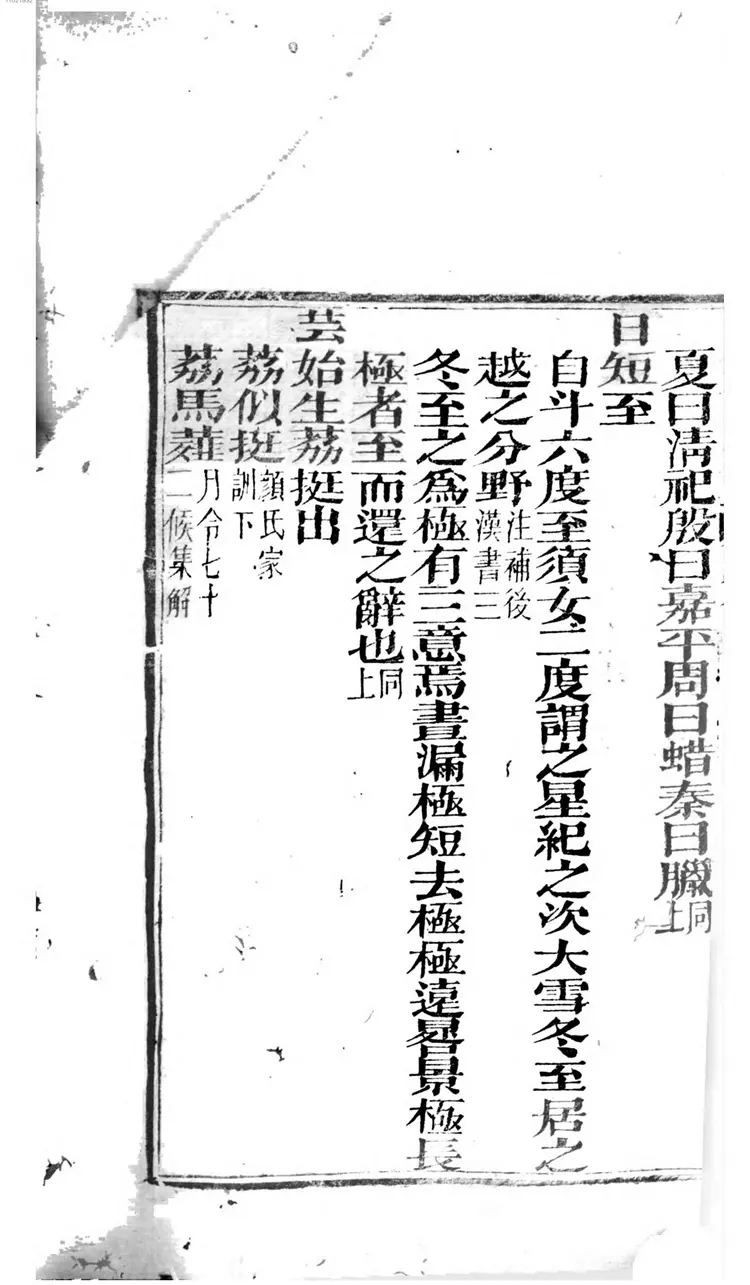 夏曰淸祀殷曰嘉平周曰蜡秦曰臘同上
日短至
自斗六度至須女二度謂之星紀之次大雪冬至居之
越之分野注補後漢書三
冬至之爲極有三意焉晝漏極短去極極遠晷景極長
極者至而還之辭也同上
芸始生荔挺出
荔似挺顏氏家訓下
荔馬薤月令七十二候集解